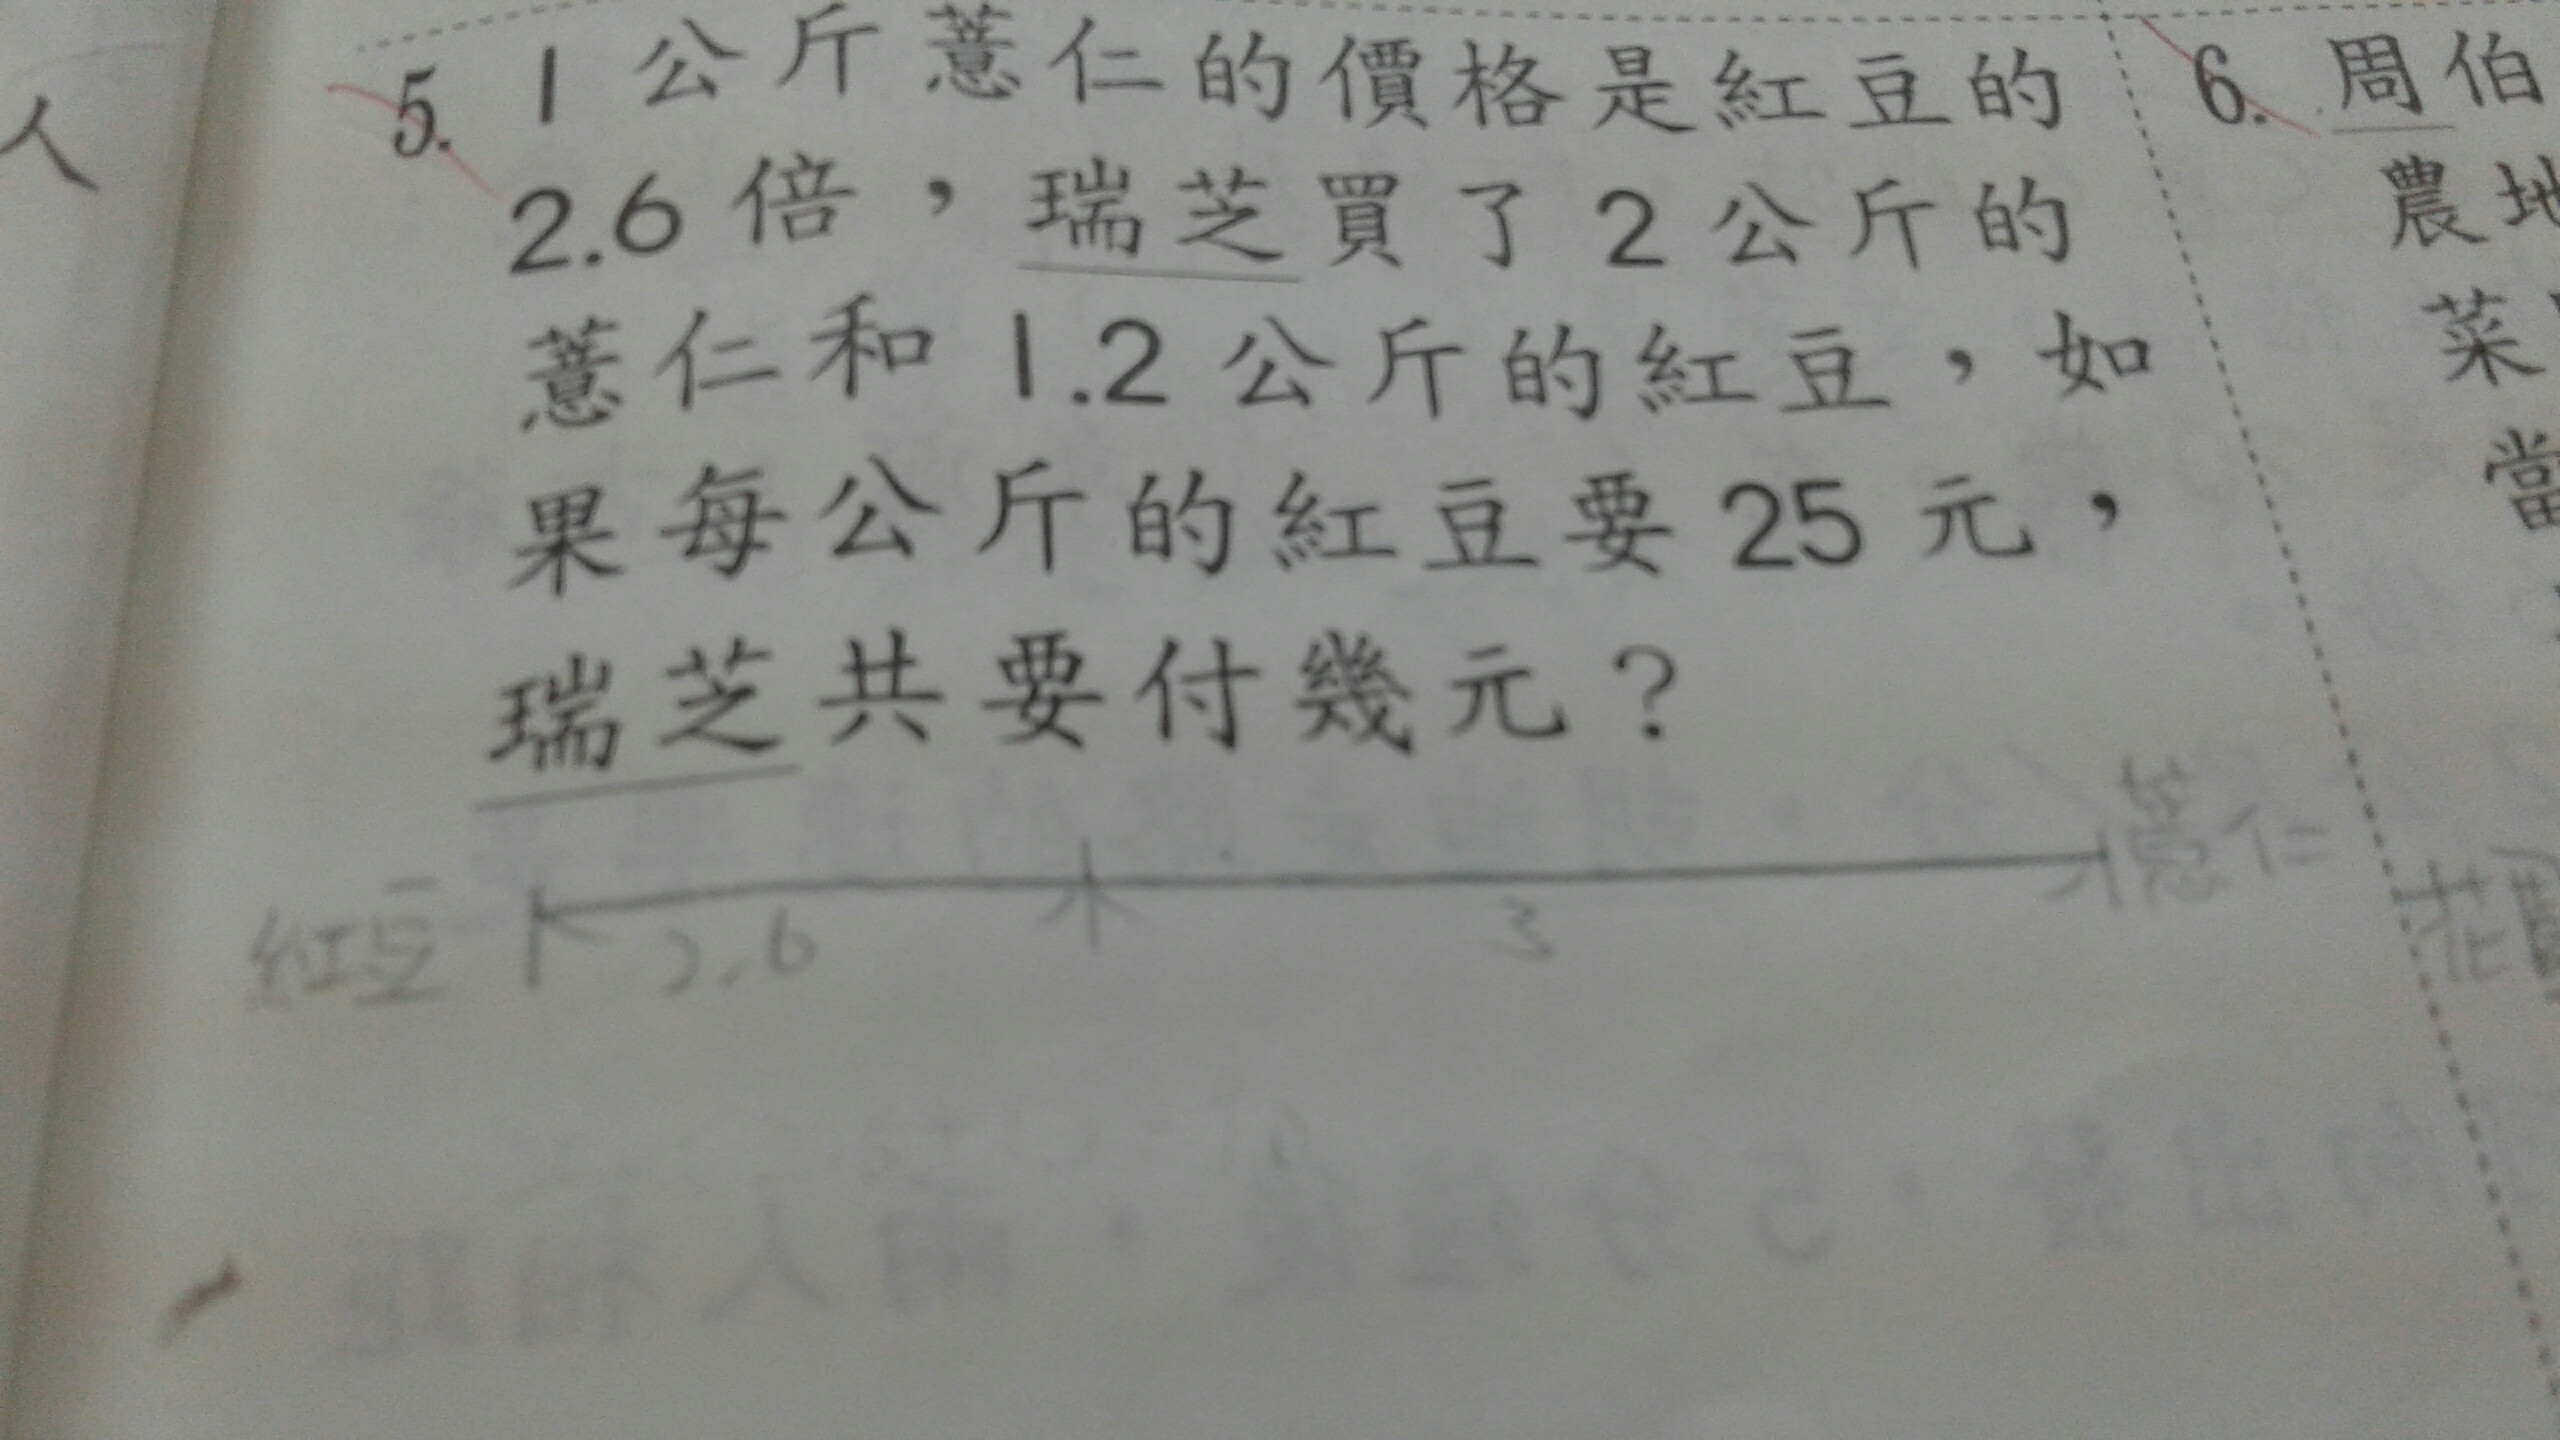 人
5. 1公斤薏仁的價格是紅豆的
2.6倍，瑞芝買了2公斤的
薏仁和1.2公斤的紅豆，如
果每公斤的紅豆要25元，
瑞芝共要付幾元？
紅豆 2.6 3 薏仁
6. 周伯
農地
菜
當
花